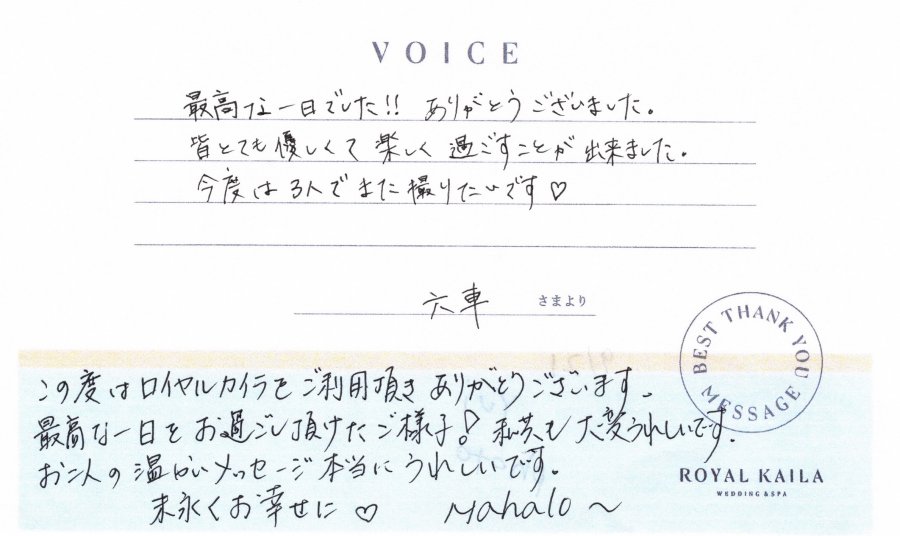 VOICE
最高な一日でした!! ありがとうございました。
皆とても優しくて 楽しく 過ごすことが 出来ました。
今度は 3人で また 撮りたいです♡
六車 さまより
BEST THANK YOU MESSAGE
この度はロイヤルカイラをご利用頂き ありがとうございます。
最高な一日をお過ごし頂けたご様子! 私共も大変うれしいです。
お二人の温かいメッセージ本当にうれしいです。
ROYAL KAILA
WEDDING & SPA
末永くお幸せに♡ Mahalo～